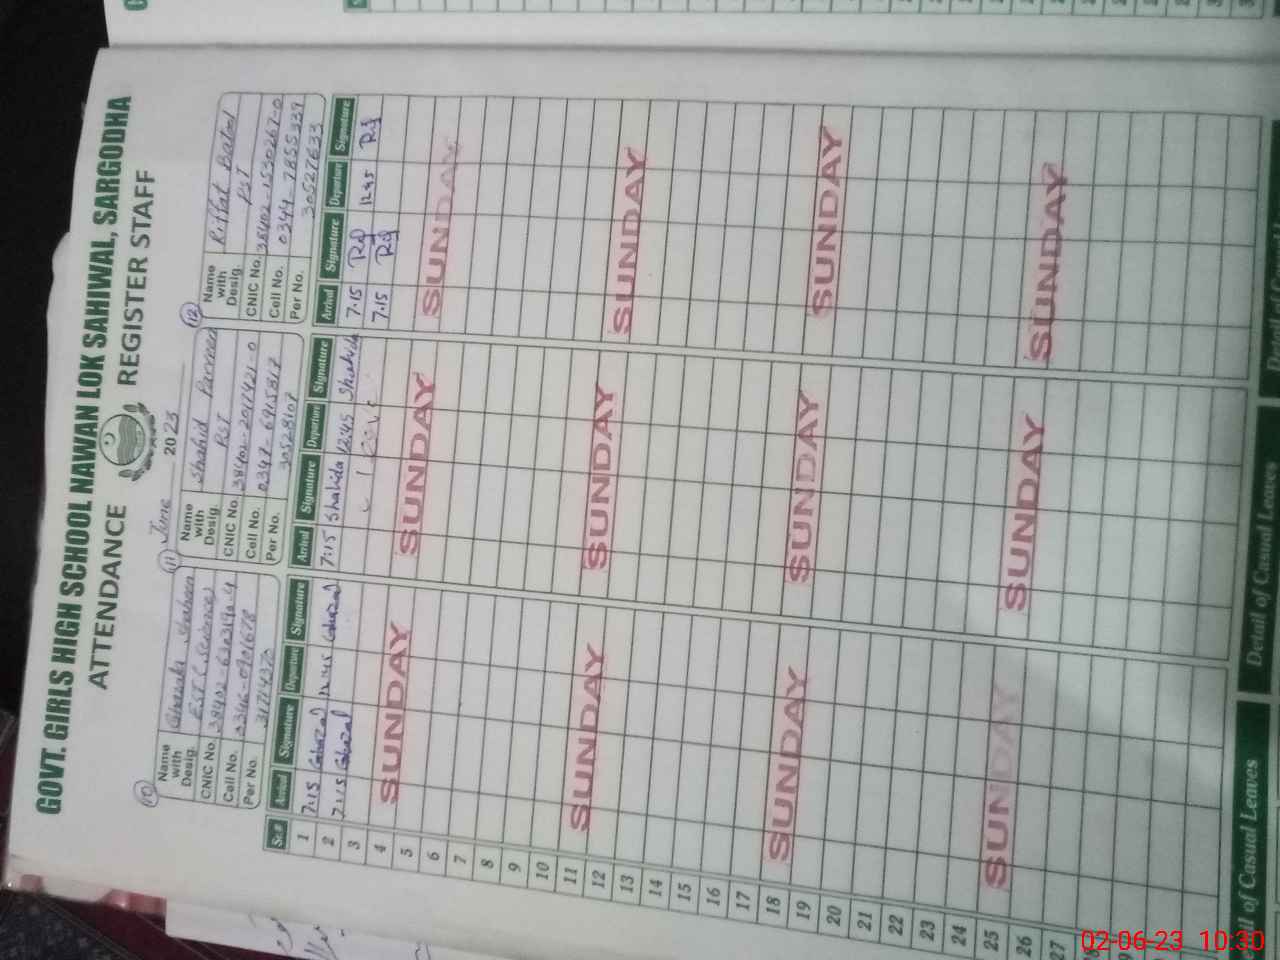 GOVT. GIRLS HIGH SCHOOL NAWAN LOK SAHIWAL, SARGODHA
ATTENDANCE REGISTER STAFF
June 2023
10
Name with Desig.
Shaheen
EST (Science)
CNIC No.
Cell No.
Per No.
11
Name with Desig.
Shahid Parveen
PST
CNIC No. 38402-2017421-0
Cell No. 0347-6915817
Per No. 30528107
12
Name with Desig.
Riffat Batool
PST
CNIC No. 38402-1530267-0
Cell No. 0344-7855339
Per No. 30527633
Sr.# Arrival Signature Departure Signature Arrival Signature Departure Signature Arrival Signature Departure Signature
1 7:15 Ghazal 12:45 Ghazal 7:15 Shahida 12:45 Shahida 7:15 Rif 12:45 Rif
2 7:15 Ghazal Leave 7:15 Rif
3
4 SUNDAY SUNDAY SUNDAY
5
6
7
8
9
10
11 SUNDAY SUNDAY SUNDAY
12
13
14
15
16
17
18 SUNDAY SUNDAY SUNDAY
19
20
21
22
23
24
25 SUNDAY SUNDAY SUNDAY
26
27
Detail of Casual Leaves Detail of Casual Leaves
02-06-23 10:30